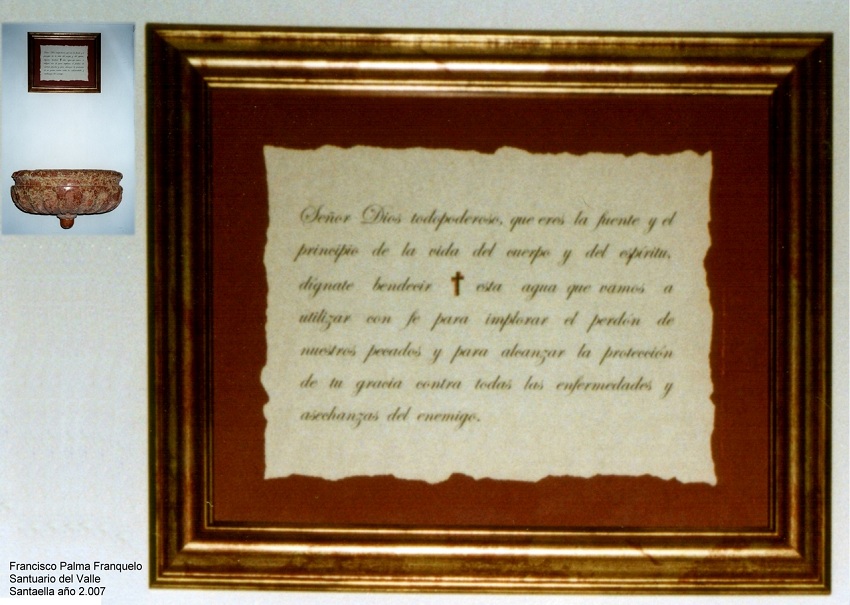 Señor Dios todopoderoso, que eres la fuente y el
principio de la vida del cuerpo y del espíritu,
dígnate bendecir ✝ esta agua que vamos a
utilizar con fe para implorar el perdón de
nuestros pecados y para alcanzar la protección
de tu gracia contra todas las enfermedades y
asechanzas del enemigo.
Francisco Palma Franquelo
Santuario del Valle
Santaella año 2.007